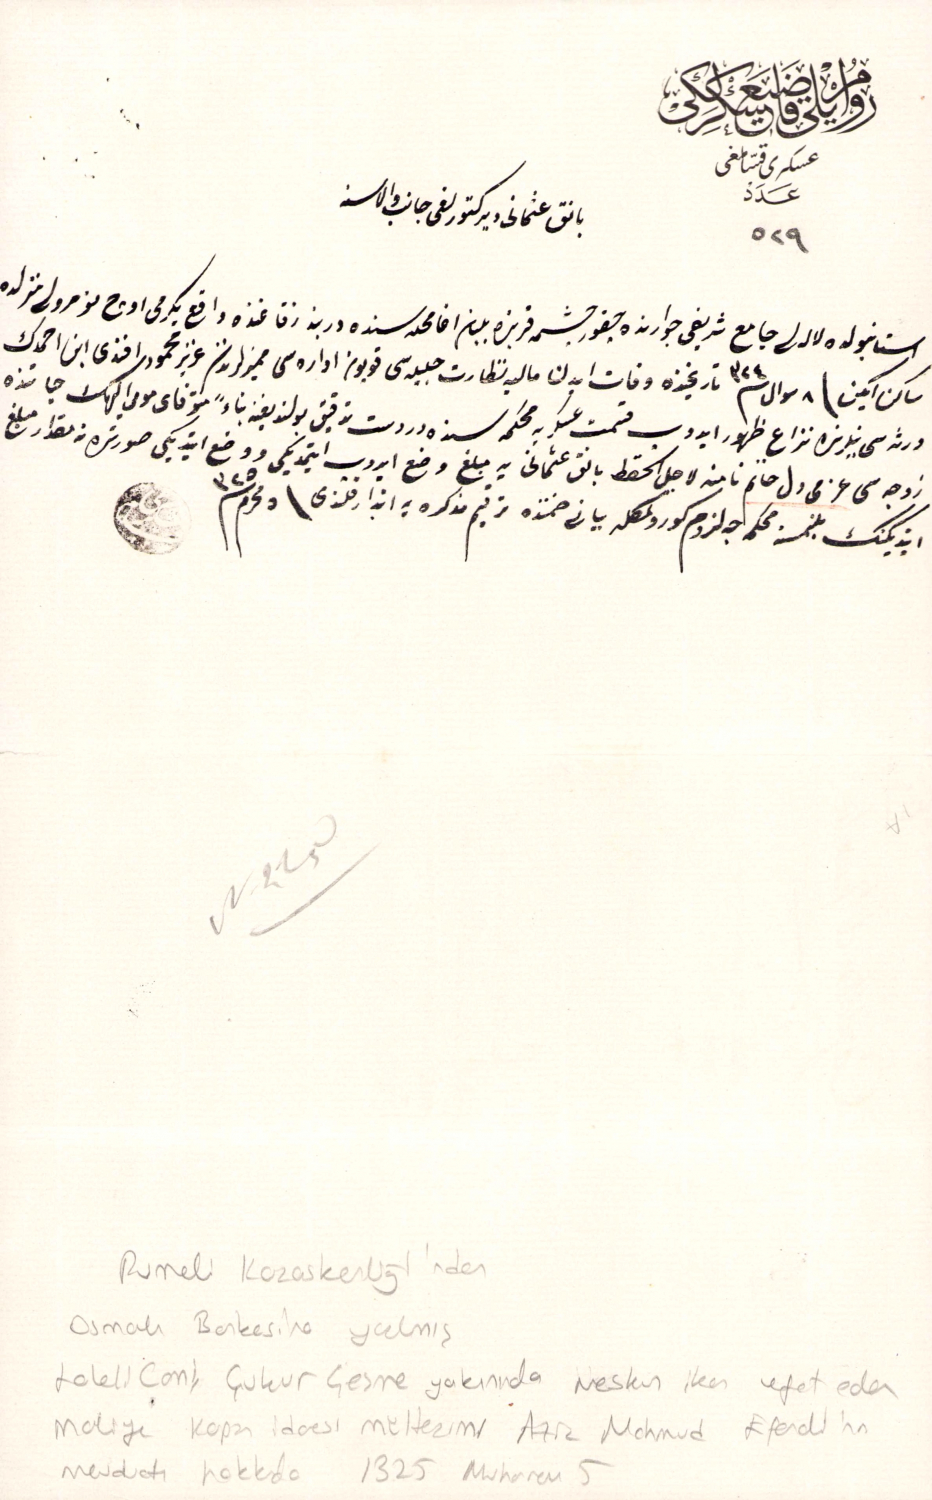 روم ايلى قاضيعسكرلكى
عسكرى قساملغى
عدد
٥٢٩
بانق عثمانى ديركتورلغى جانب والاسنه
استانبولده لاله لى جامع شريفى جوارنده چقور چشمه قربنده بلبان اغا محله سنده دربند زقاغنده واقع يكرمى اوچ نومرولى منزلده
ساكن ايكن ٨ شوال سنه ٣٢٤ تاريخنده وفات ايدن ماليه نظارت جليله سى قوپون اداره سى مميزلرندن عزيز محمود افندى ابن احمدك
ورثه سى بيننده نزاع ظهور ايدوب قسمت عسكريه محكمه سنده دردست تدقيق بولنديغنه بناءً متوفاى مومى اليهك حياتنده
زوجه سى عزمى دل خانم نامنه لاجل الحفظ بانق عثمانى يه مبلغ وضع ايدوب ايتمديكى ووضع ايتديكى صورتده نه مقدار مبلغ
ايتديكنك بلنمسنه محكمه جه لزوم كورلمكله بيانى ضمننده ترقيم تذكره يه ابتدار قلندى ٥ محرم سنه ٣٢٥
Rumeli Kazaskerliği'nden
Osmanlı Bankasına yazılmış
Laleli Cami Çukur Çeşme yakınında meskun iken vefat eden
Maliye Kopon idaresi mültezimi Aziz Mahmud Efendi'nin
mevduatı hakkında 1325 Muharrem 5